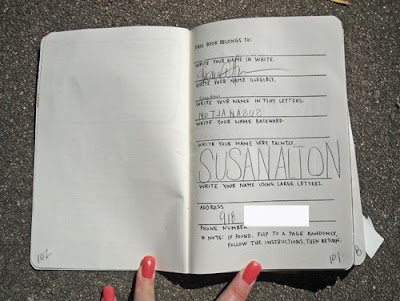 THIS BOOK BELONGS TO:
WRITE YOUR NAME IN WHITE.
WRITE YOUR NAME ILLEGIBLY.
WRITE YOUR NAME IN TINY LETTERS.
NOTLANASUS
WRITE YOUR NAME BACKWARD.
WRITE YOUR NAME VERY FAINTLY.
SUSAN ALTON
WRITE YOUR NAME USING LARGE LETTERS.
ADDRESS
918
PHONE NUMBER
* NOTE: IF FOUND, FLIP TO A PAGE RANDOMLY,
FOLLOW THE INSTRUCTIONS, THEN RETURN.
102
101